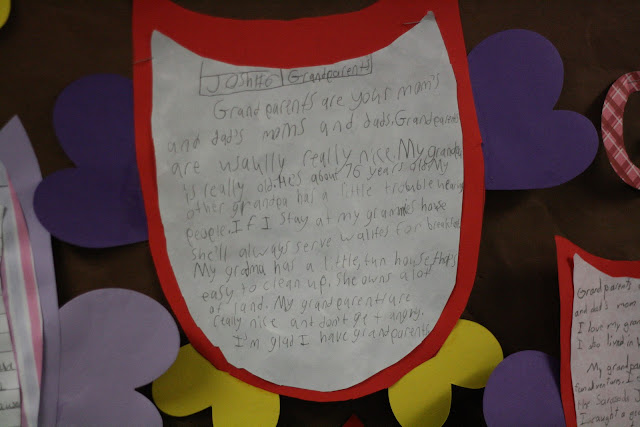 Josh#6 Grandparents
Grandparents are your mom's
and dad's moms and dads. Grandparents
are usaully really nice. My grandpa
is really old. He's about 76 years old. My
other grandpa has a little trouble hearing
people. If I stay at my grandma's house
she'll always serve wafles for breakfast.
My gradma has a little, tan house, that's
easy to clean up. She owns a lot
of land. My grandparents are
really nice and don't get angry.
I'm glad I have grandparents
Grandparents
and dad's mom
I love my gran
I also lived in
My grandpa